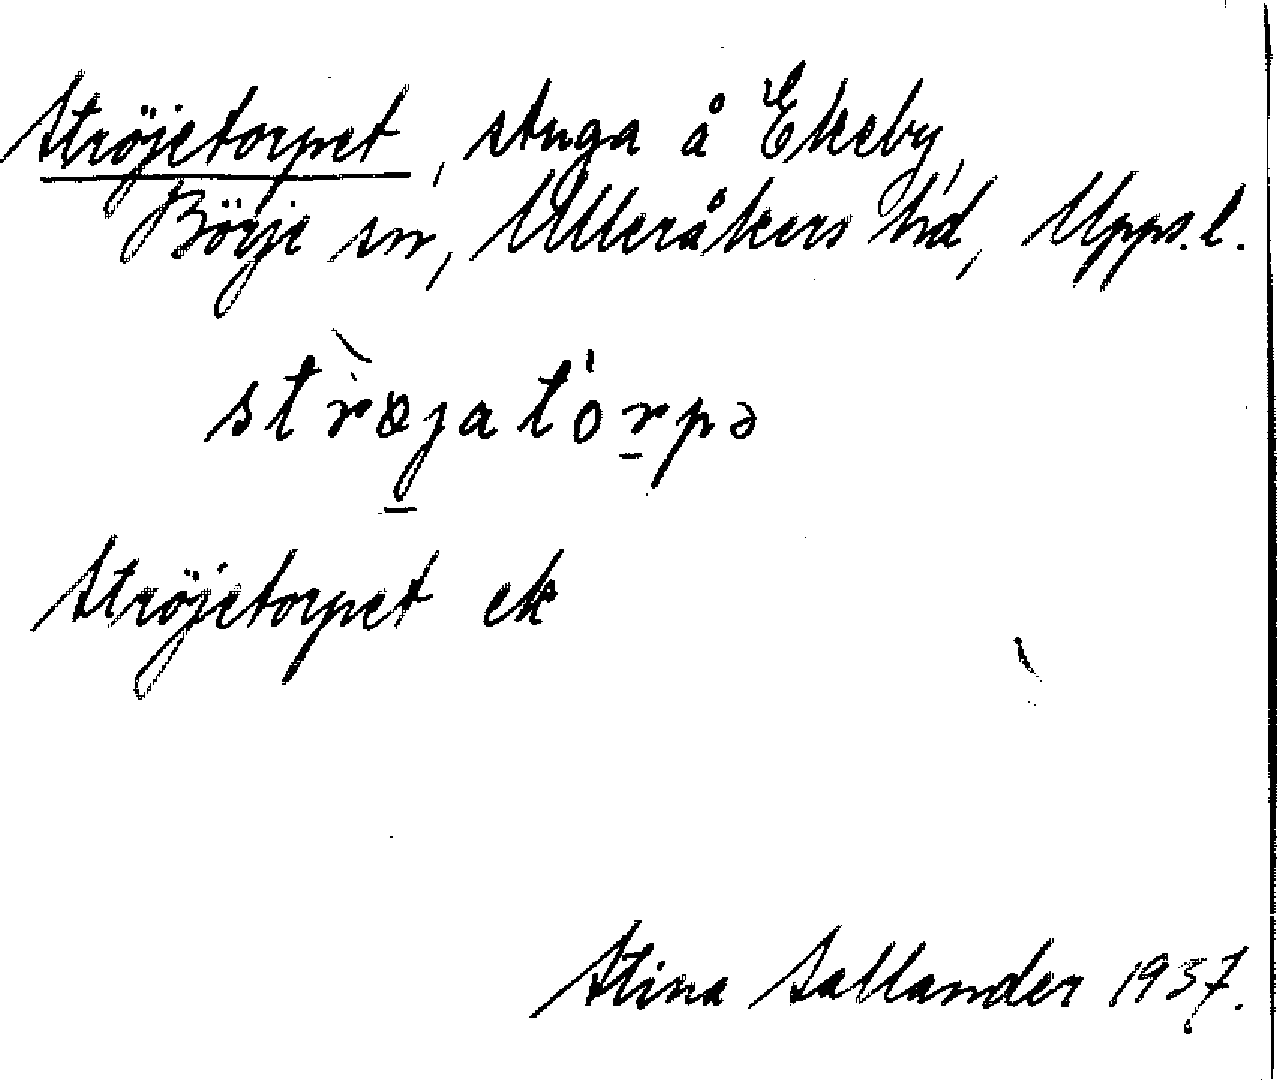 Ströjetorpet, stuga å Ekeby,
Börje sn, Ulleråkers hd, Upps. l.
strøjatórpə
Ströjetorpet ek
Stina Sallander 1937.